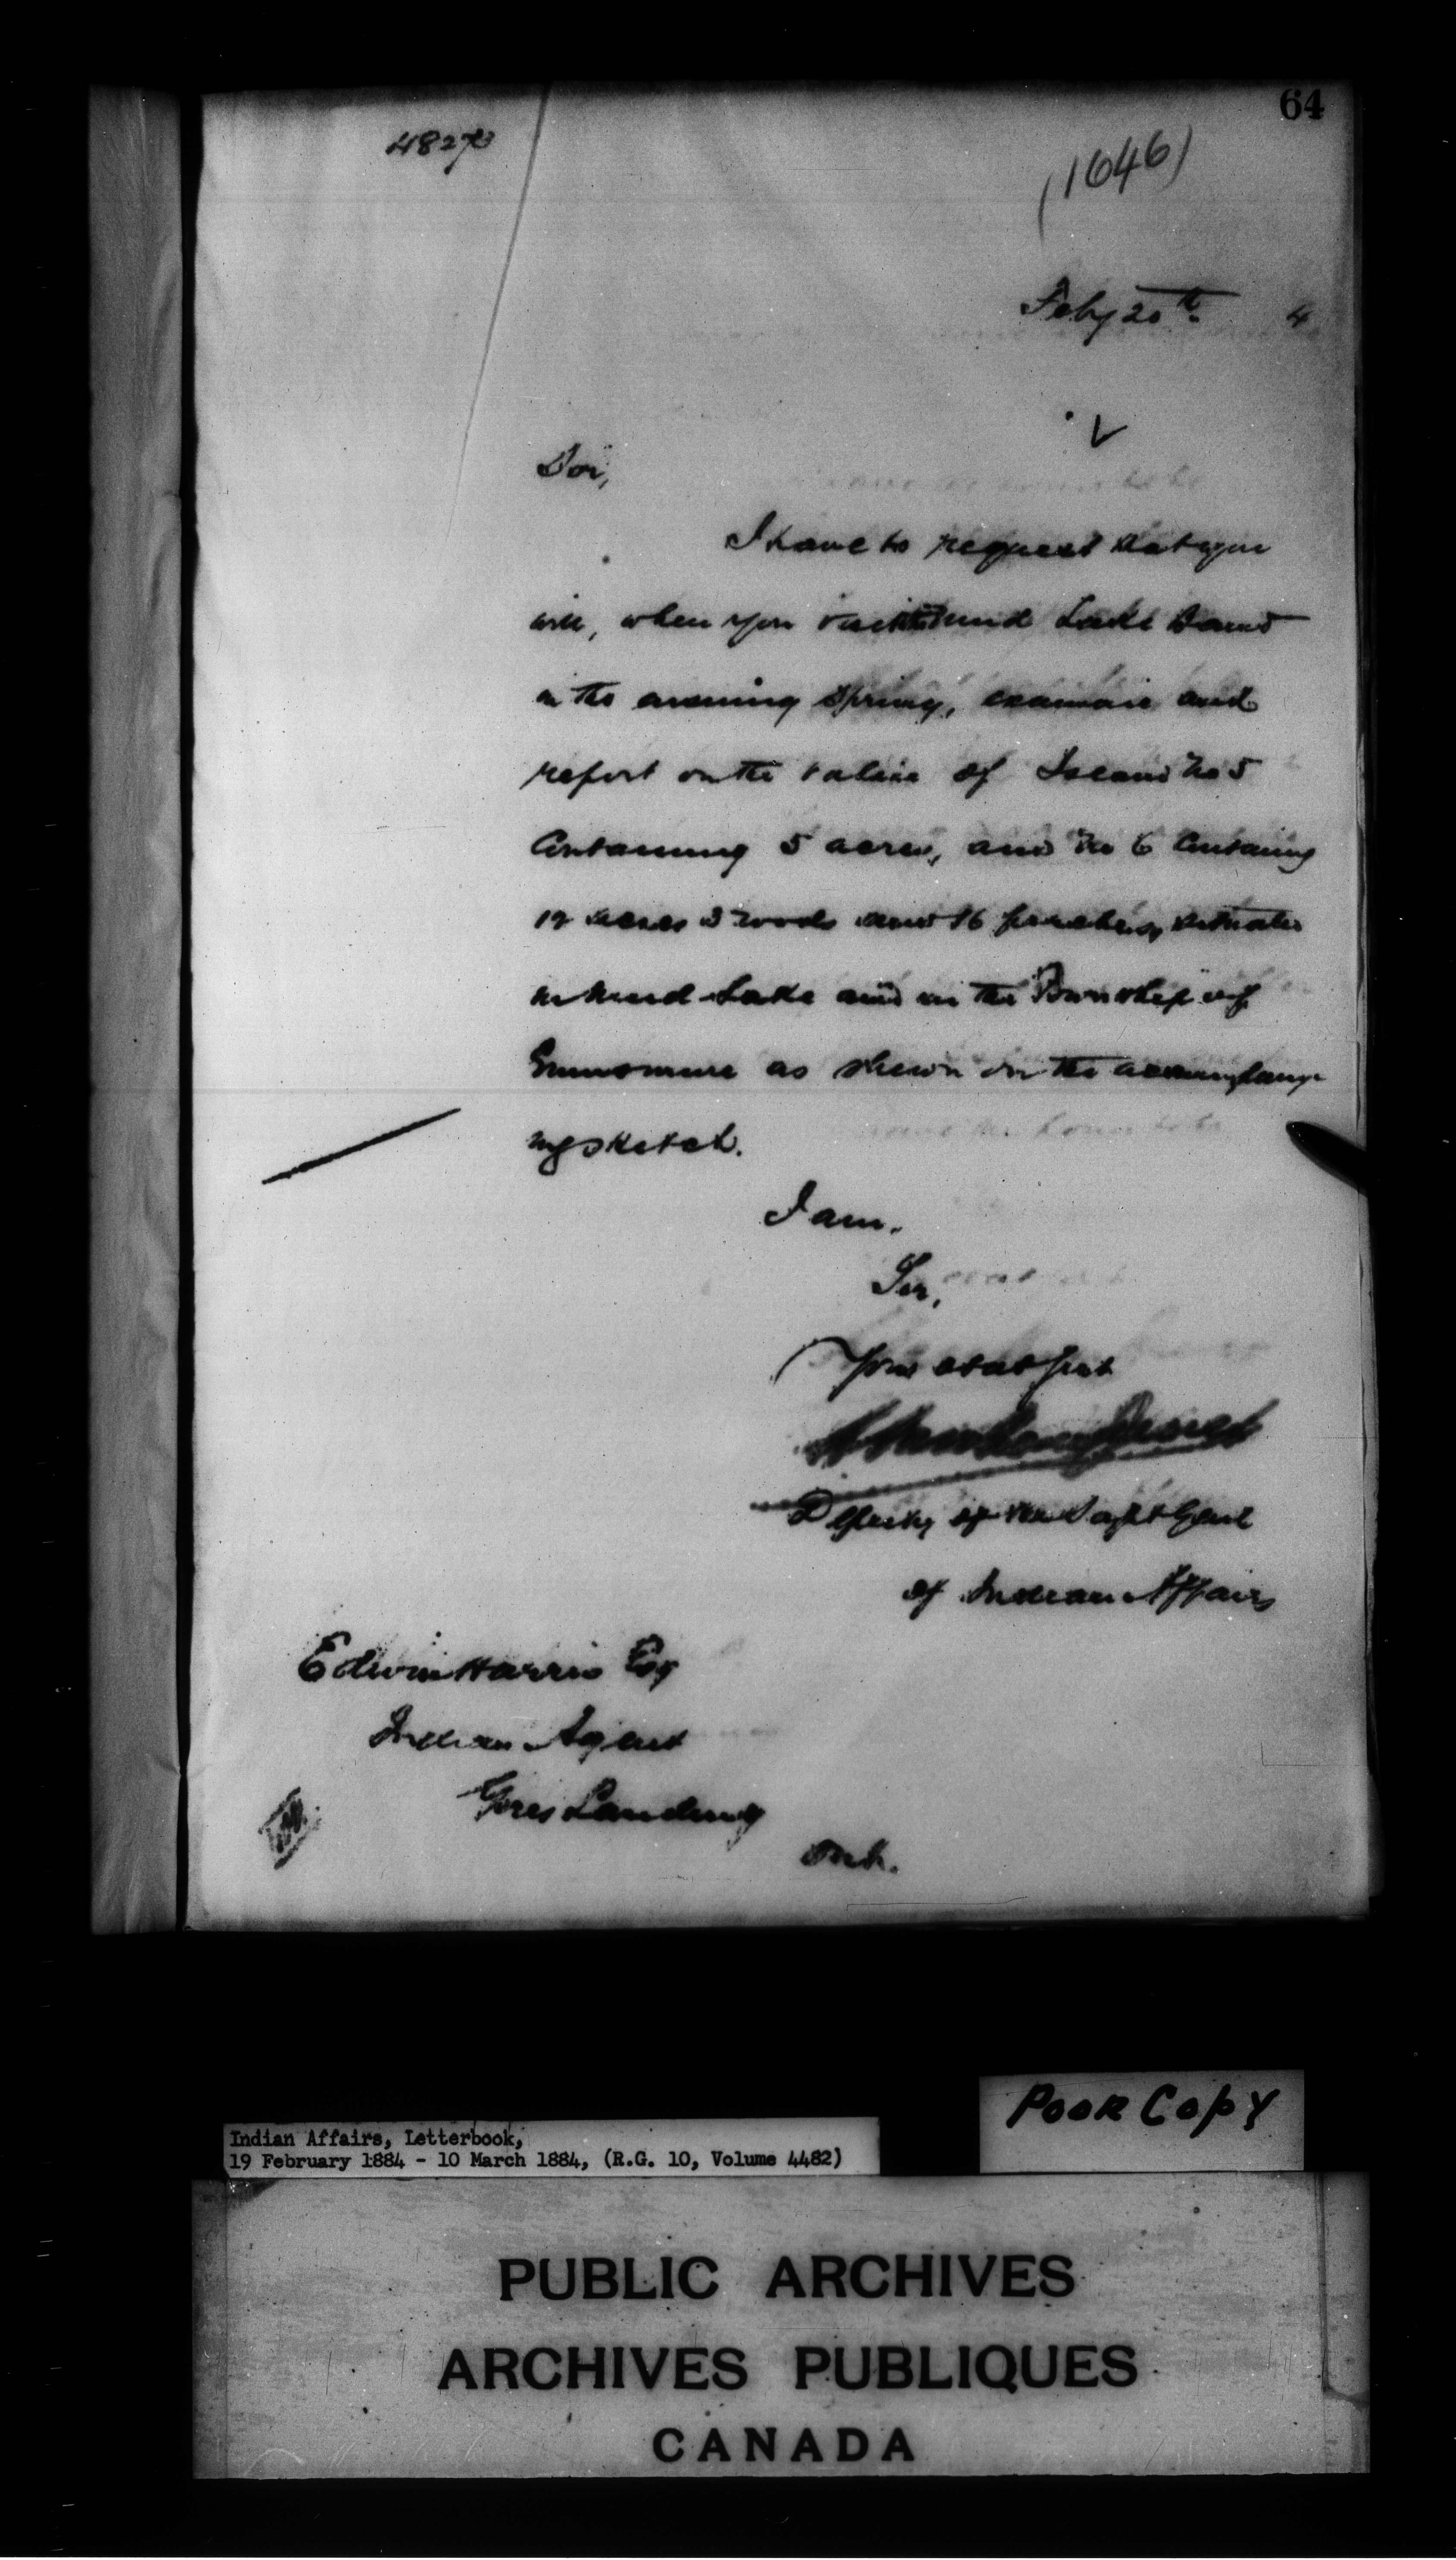 64
(1646)
Feby 20th 4
Sir,
I have to request that you
will, when you visit Mud Lake Band
in the ensuing Spring, examine and
report on the value of Island No 5
Containing 5 acres, and No 6 Containing
19 acres 3 roods and 16 perches, situate
in Mud Lake and in the Township of
Ennismore as shewn on the accompany
ing sketch.
I am,
Sir,
Your obdt Servt
Deputy of the Supt Genl
of Indian Affairs
Edwin Harris Esq
Indian Agent
Gores Landing
Ont.
POOR COPY
Indian Affairs, Letterbook,
19 February 1884 - 10 March 1884, (R.G. 10, Volume 4482)
PUBLIC ARCHIVES
ARCHIVES PUBLIQUES
CANADA